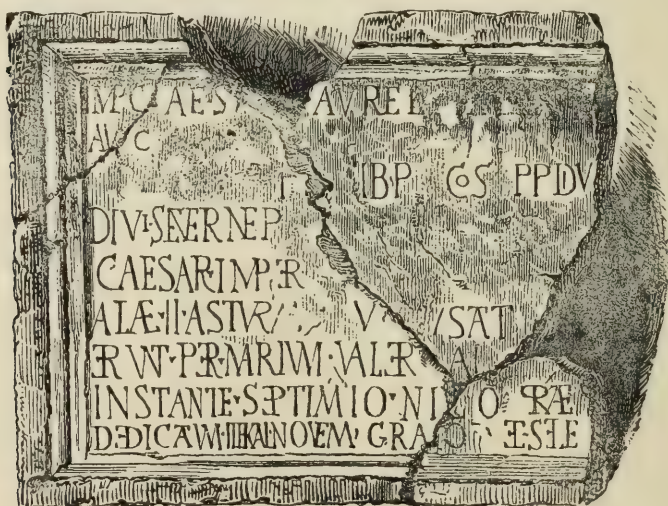 IMP·CAES AVREL
AVG
T IBP COS PP DV
DIVI·SEVER NEP
CAESAR·IMPER
ALÆ·II·ASTVR V SAT
ERVNT·PER·MARIVM·VALER A
INSTANTE·SEPTIMIO·NI O PRÆ
DEDICATVM·IIII·KAL·NOVEM GRA ET SELE